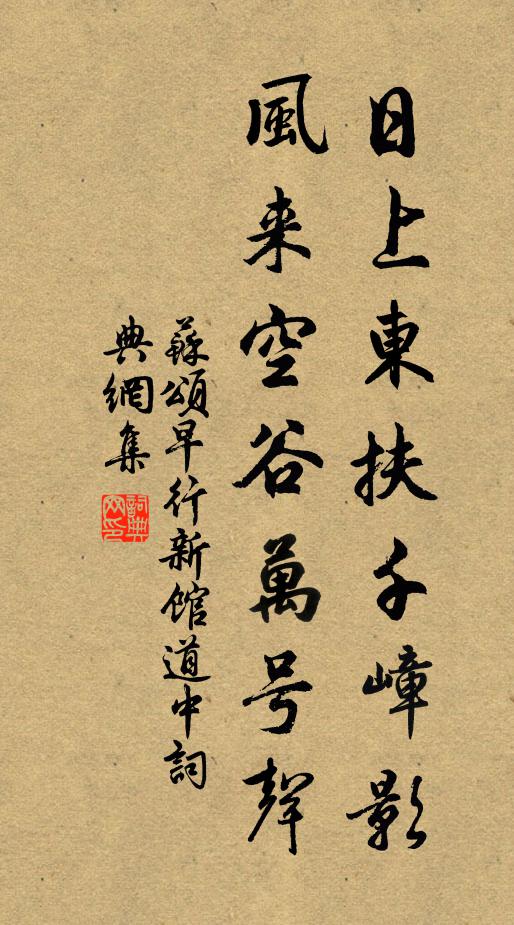 日上東扶千嶂影
風来空谷萬号聲
蘇頌早行新館道中詞
典網集
詞典網印